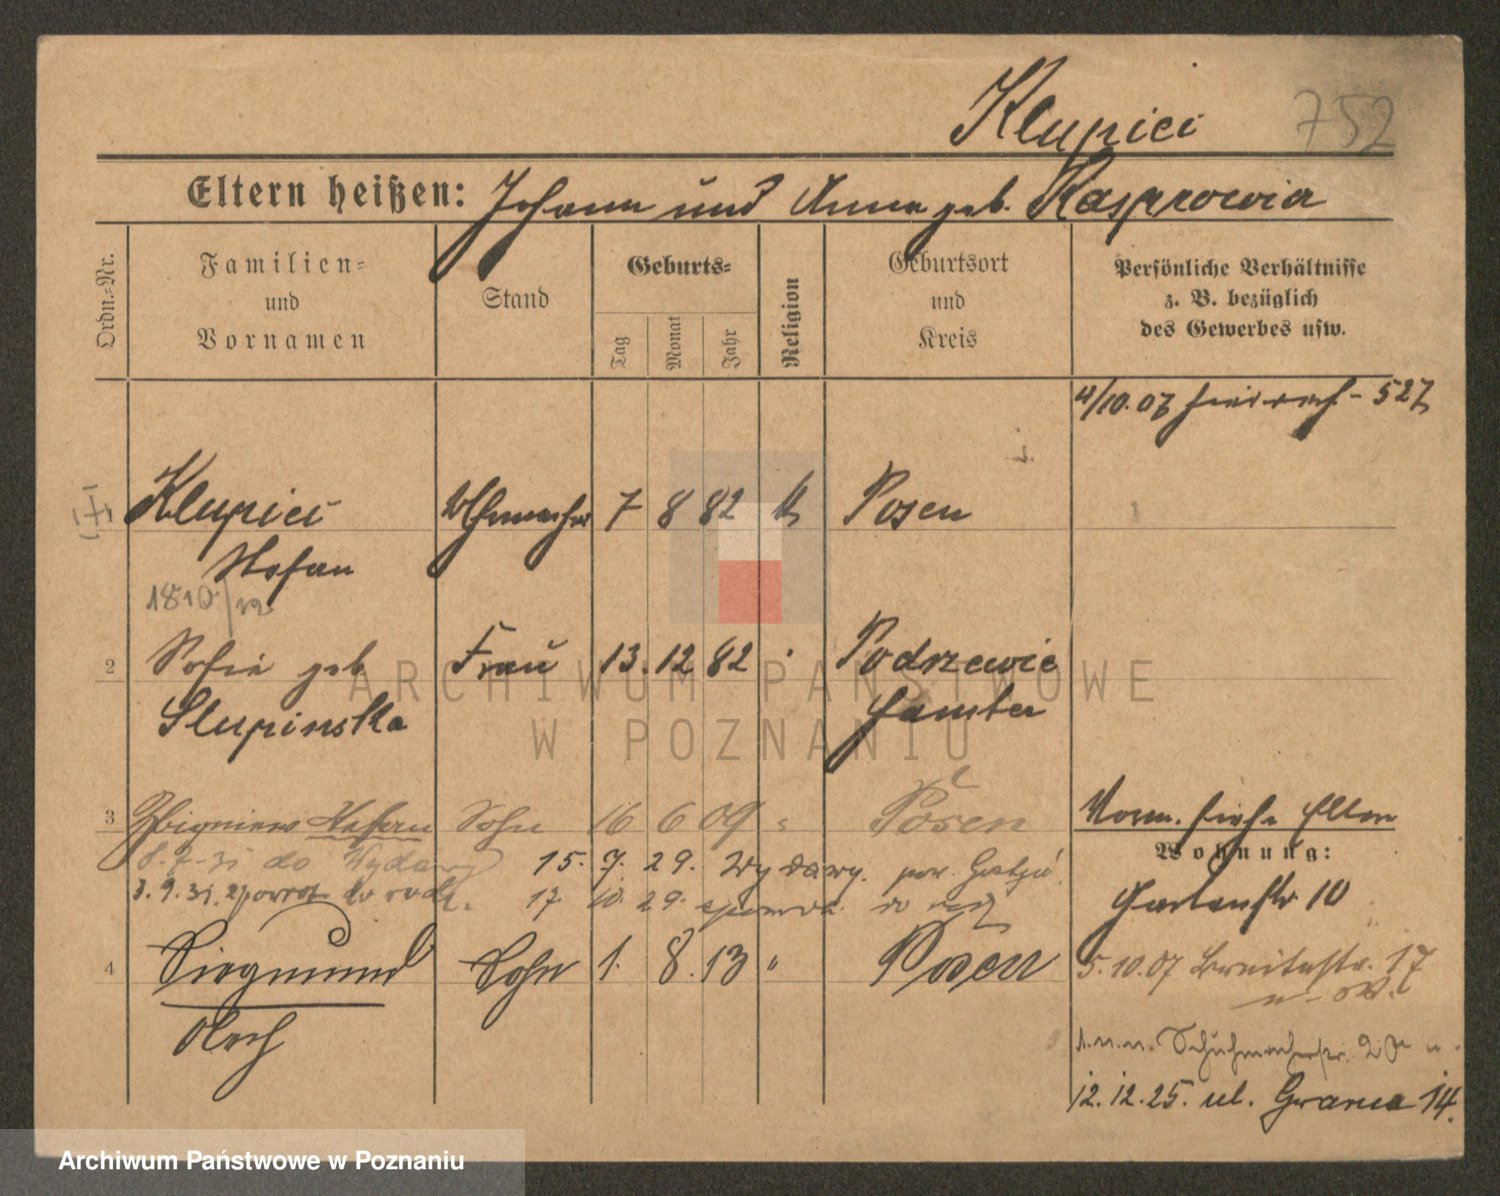 Klupieci 752
Eltern heißen: Johann und Anna geb. Kasprowia
Ordn.-Nr.
Familien-
und
Vornamen
Stand
Geburts-
Tag
Monat
Jahr
Religion
Geburtsort
und
Kreis
Persönliche Verhältnisse
z. B. bezüglich
des Gewerbes usw.
4/10.07 - 527
Klupieci Uhrmacher 7 8 82 k Posen
Stefan
1810/12
2 Sofie geb. Frau 13. 12 82 Podrzewie
Slupinska Samter
3 Zbigniew Stefan Sohn 16 6 09 " Posen
Vorm. siehe Eltern
Wohnung:
8.7-31 do Wydawy 15. 7. 29. Wydawy. pow. Gostyń
3.9.31. zpowrot do rodz. 17. 10. 29. do rodz
Gartenstr 10
4 Siegmund Sohn 1. 8. 13 " Posen
5.10.07 Breitestr. 17
Schuhmacherstr. 20
12.12.25. ul. Grania 14.
ARCHIWUM PAŃSTWOWE
W POZNANIU
Archiwum Państwowe w Poznaniu